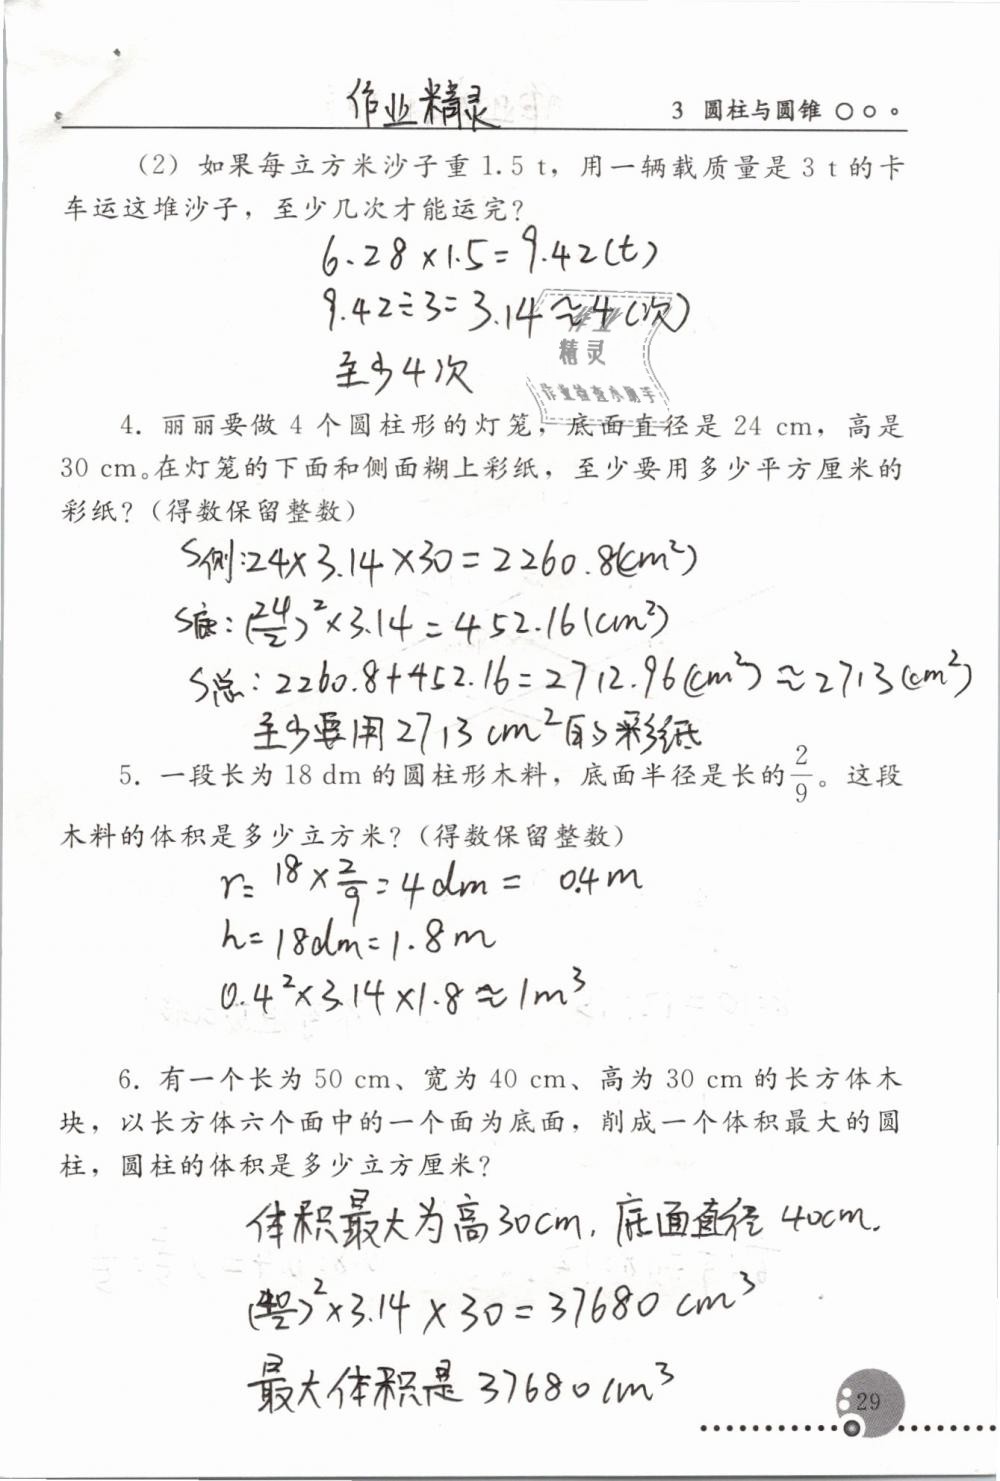 作业精灵
3 圆柱与圆锥
(2) 如果每立方米沙子重 1.5 t，用一辆载质量是 3 t 的卡
车运这堆沙子，至少几次才能运完？
6.28×1.5=9.42(t)
9.42÷3=3.14≈4(次)
精灵
作业检查小助手
至少4次
4. 丽丽要做 4 个圆柱形的灯笼，底面直径是 24 cm，高是
30 cm。在灯笼的下面和侧面糊上彩纸，至少要用多少平方厘米的
彩纸？（得数保留整数）
S侧:24×3.14×30=2260.8(cm²)
S底:(24/2)²×3.14=452.16(cm²)
S总:2260.8+452.16=2712.96(cm²)≈2713(cm²)
至少要用2713cm²的彩纸
5. 一段长为 18 dm 的圆柱形木料，底面半径是长的 2/9。这段
木料的体积是多少立方米？（得数保留整数）
r=18×2/9=4dm= 0.4m
h=18dm=1.8m
0.4²×3.14×1.8≈1m³
6. 有一个长为 50 cm、宽为 40 cm、高为 30 cm 的长方体木
块，以长方体六个面中的一个面为底面，削成一个体积最大的圆
柱，圆柱的体积是多少立方厘米？
体积最大为高30cm,底面直径40cm.
(40/2)²×3.14×30=37680cm³
最大体积是37680cm³
29